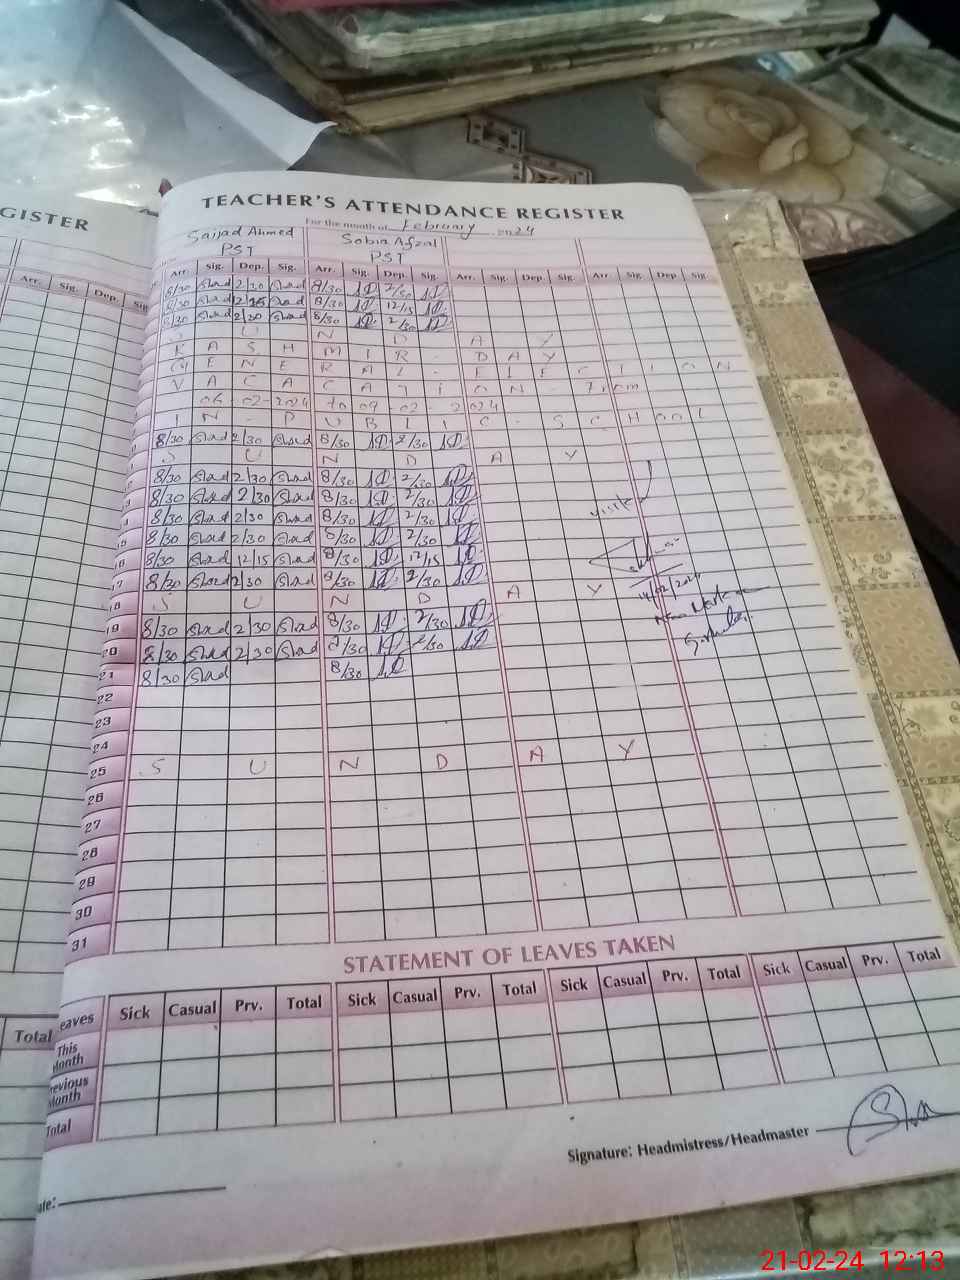 GISTER
TEACHER'S ATTENDANCE REGISTER
For the month of February 2024
Sajjad Ahmed Sobia Afzal
PST PST
Arr. Sig. Dep. Sig. Arr. Sig. Dep. Sig. Arr. Sig. Dep. Sig. Arr. Sig. Dep. Sig.
8/30 Shad 2/30 Shad 8/30 2/30
8/30 Shad 2/15 Shad 8/30 12/15
8/30 Shad 2/30 Shad 8/30 2/30
S U N D A Y
K A S H M I R - D A Y
G E N E R A L - E L E C T I O N
V A C A C A T I O N - From
06-02-2024 to 09-02-2024
I N - P U B L I C - S C H O O L
8/30 Shad 2/30 Shad 8/30 2/30
S U N D A Y
8/30 Shad 2/30 Shad 8/30 2/30
8/30 Shad 2/30 Shad 8/30 2/30
8/30 Shad 2/30 Shad 8/30 2/30
15 8/30 Shad 2/30 Shad 8/30 2/30
16 8/30 Shad 12/15 Shad 8/30 12/15
17 8/30 Shad 2/30 Shad 8/30 2/30
18 S U N D A Y
19 8/30 Shad 2/30 Shad 8/30 2/30
20 8/30 Shad 2/30 Shad 8/30 2/30
21 8/30 Shad 8/30
22
23
24
25 S U N D A Y
26
27
28
29
30
31
STATEMENT OF LEAVES TAKEN
eaves Sick Casual Prv. Total Sick Casual Prv. Total Sick Casual Prv. Total Sick Casual Prv. Total
Total
This Month
revious Month
Total
Signature: Headmistress/Headmaster
ate:
21-02-24 12:13